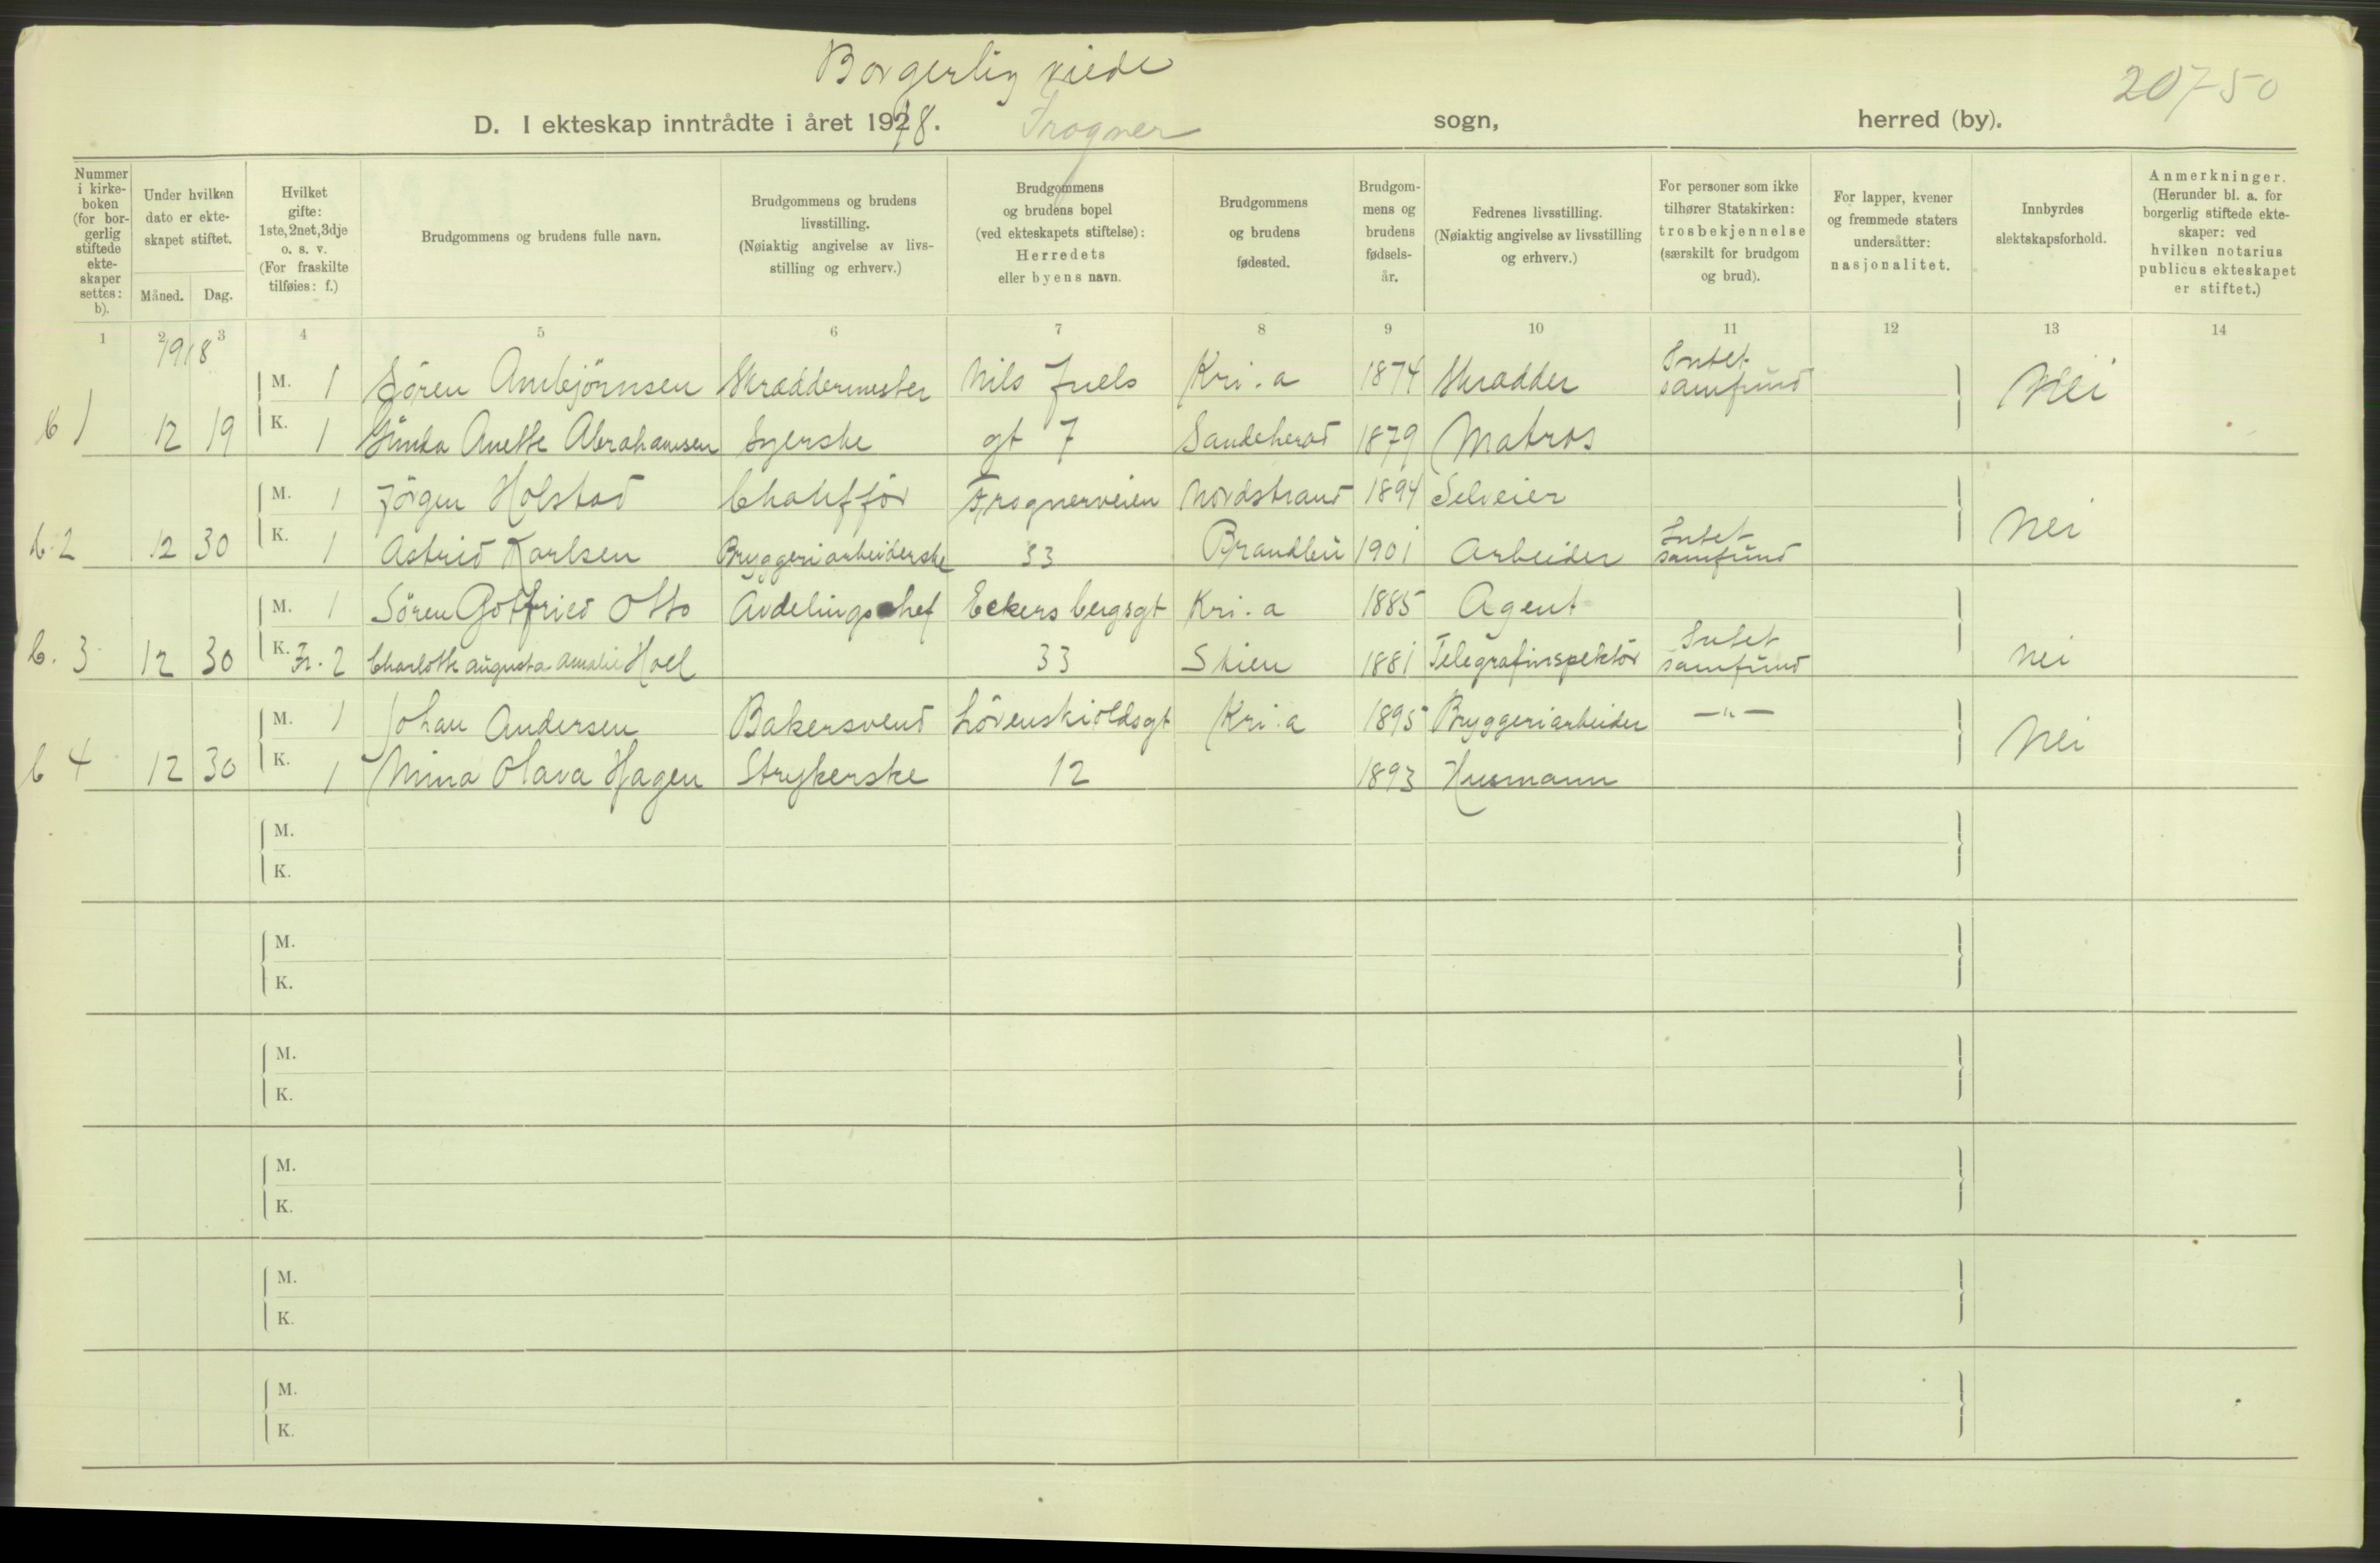 Borgerlig viede
20750
D. I ekteskap inntrådte i året 1918. Frogner sogn, herred (by).
Nummer i kirkeboken (for borgerlig stiftede ekteskaper settes: b).
Under hvilken dato er ekteskapet stiftet.
Måned. Dag.
Hvilket gifte: 1ste, 2net, 3dje o. s. v. (For fraskilte tilføies: f.)
Brudgommens og brudens fulle navn.
Brudgommens og brudens livsstilling. (Nøiaktig angivelse av livsstilling og erhverv.)
Brudgommens og brudens bopel (ved ekteskapets stiftelse): Herredets eller byens navn.
Brudgommens og brudens fødested.
Brudgommens og brudens fødselsår.
Fedrenes livsstilling. (Nøiaktig angivelse av livsstilling og erhverv.)
For personer som ikke tilhører Statskirken: trosbekjennelse (særskilt for brudgom og brud).
For lapper, kvener og fremmede staters undersåtter: nasjonalitet.
Innbyrdes slektskapsforhold.
Anmerkninger. (Herunder bl. a. for borgerlig stiftede ekteskaper: ved hvilken notarius publicus ekteskapet er stiftet.)
1 2 3 4 5 6 7 8 9 10 11 12 13 14
1918
M. 1 Sören Arnbjörnsen Skræddermester Nils Juels Kri.a 1874 Skrædder Intet samfund Nei
b 1 12 19 K. 1 Anette Abrahamsen Syerske gt 7 Sandeherad 1879 Matros
M. 1 Jörgen Holstad Chaufför Frognerveien Nordstrand 1894 Selveier Nei
b. 2 12 30 K. 1 Astrid Karlsen Bryggeriarbeiderske 33 Brandbu 1901 Arbeider Intet samfund
M. 1 Sören Gotfried Otto Avdelingschef Eckersbergsgt Kri.a 1885 Agent
b. 3 12 30 K. Fr. 2 Charlotte Augusta Amalie Hoel 33 Skien 1881 Telegrafinspektör Intet samfund Nei
M. 1 Johan Andersen Bakersvend Lövenskioldsgt Kri.a 1895 Bryggeriarbeider —"— Nei
b 4 12 30 K. 1 Mina Olava Hagen Strykerske 12 1893 Husmann
M.
K.
M.
K.
M.
K.
M.
K.
M.
K.
M.
K.